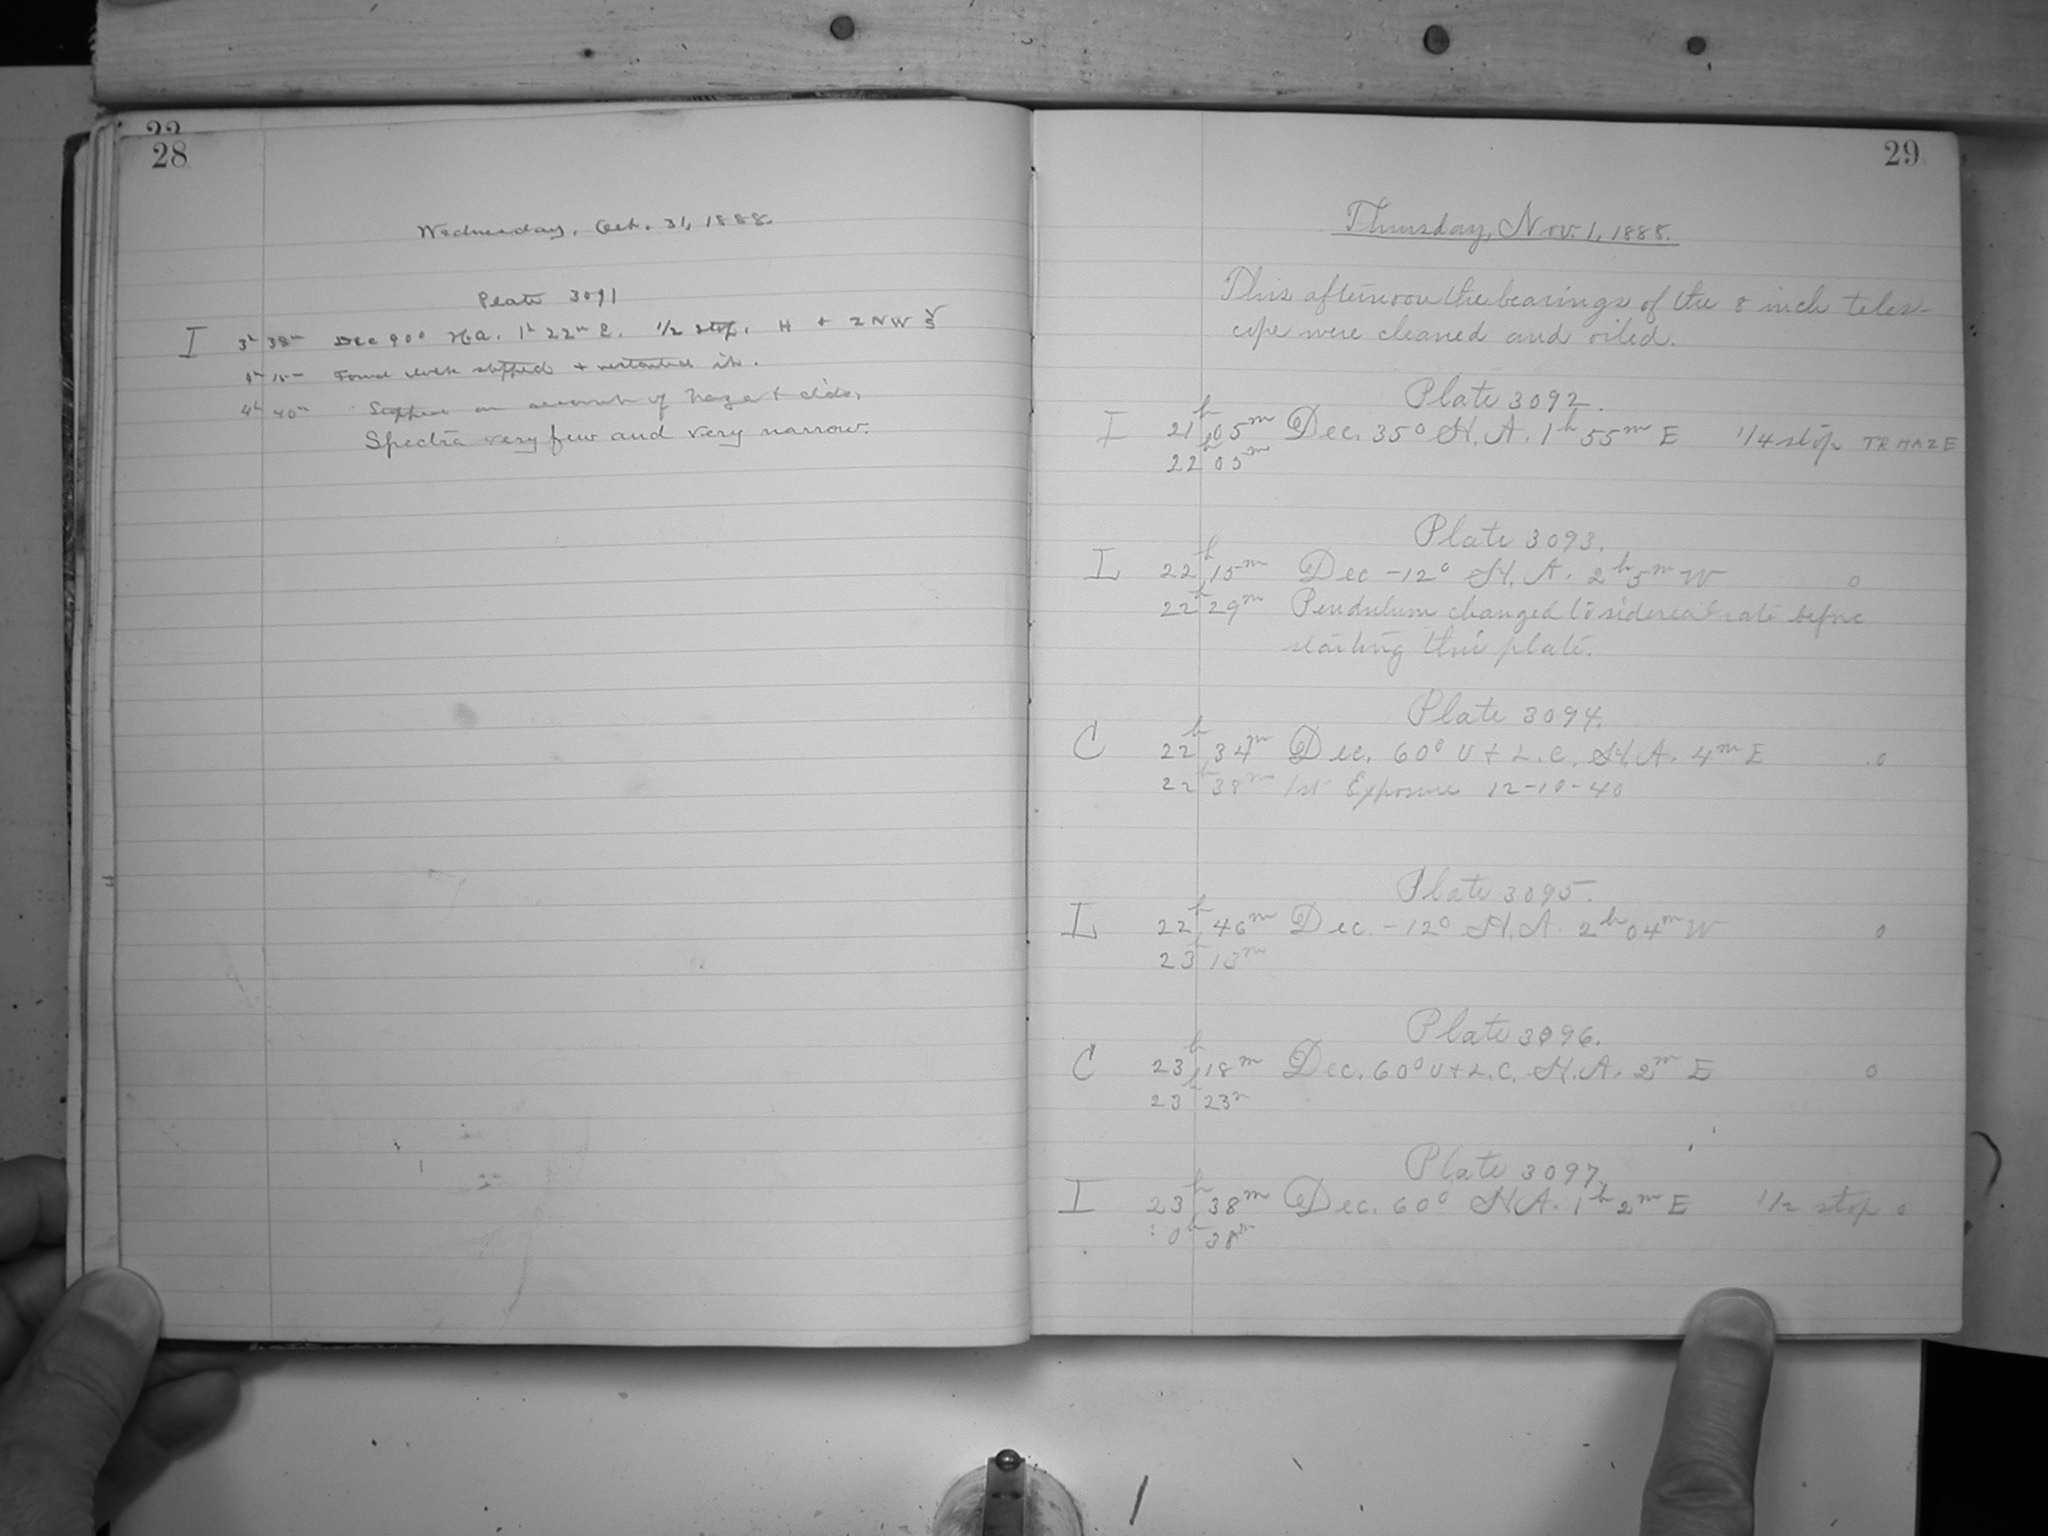 22
28
Wednesday, Oct. 31, 1888.
Plate 3091
I 3h 38m Dec 90° H.A. 1h 22m E. 1/2 stop. H + 2 NW 5
4h 15m Found clock stopped & restarted it.
4h 40m Stopped on account of haze & clds.
Spectra very few and very narrow.
29
Thursday, Nov. 1, 1888.
This afternoon the bearings of the 8 inch teles-
cope were cleaned and oiled.
Plate 3092.
I 21h 05m Dec. 35° H. A. 1h 55m E 1/4 stop TR HAZE
22h 05m
Plate 3093.
L 22h 15m Dec -12° H. A. 2h 5m W 0
22h 29m Pendulum changed to sidereal rate before
starting this plate.
Plate 3094.
C 22h 34m Dec. 60° U + L.C. H.A. 4m E 0
22h 38m 1st Exposure 12-10-40
Plate 3095.
L 22h 46m Dec. -12° H. A. 2h 04m W 0
23h 13m
Plate 3096.
C 23h 18m Dec. 60° U + L.C. H.A. 2m E 0
23h 23m
Plate 3097.
I 23h 38m Dec. 60° H A. 1h 2m E 1/2 stop 0
0h 38m